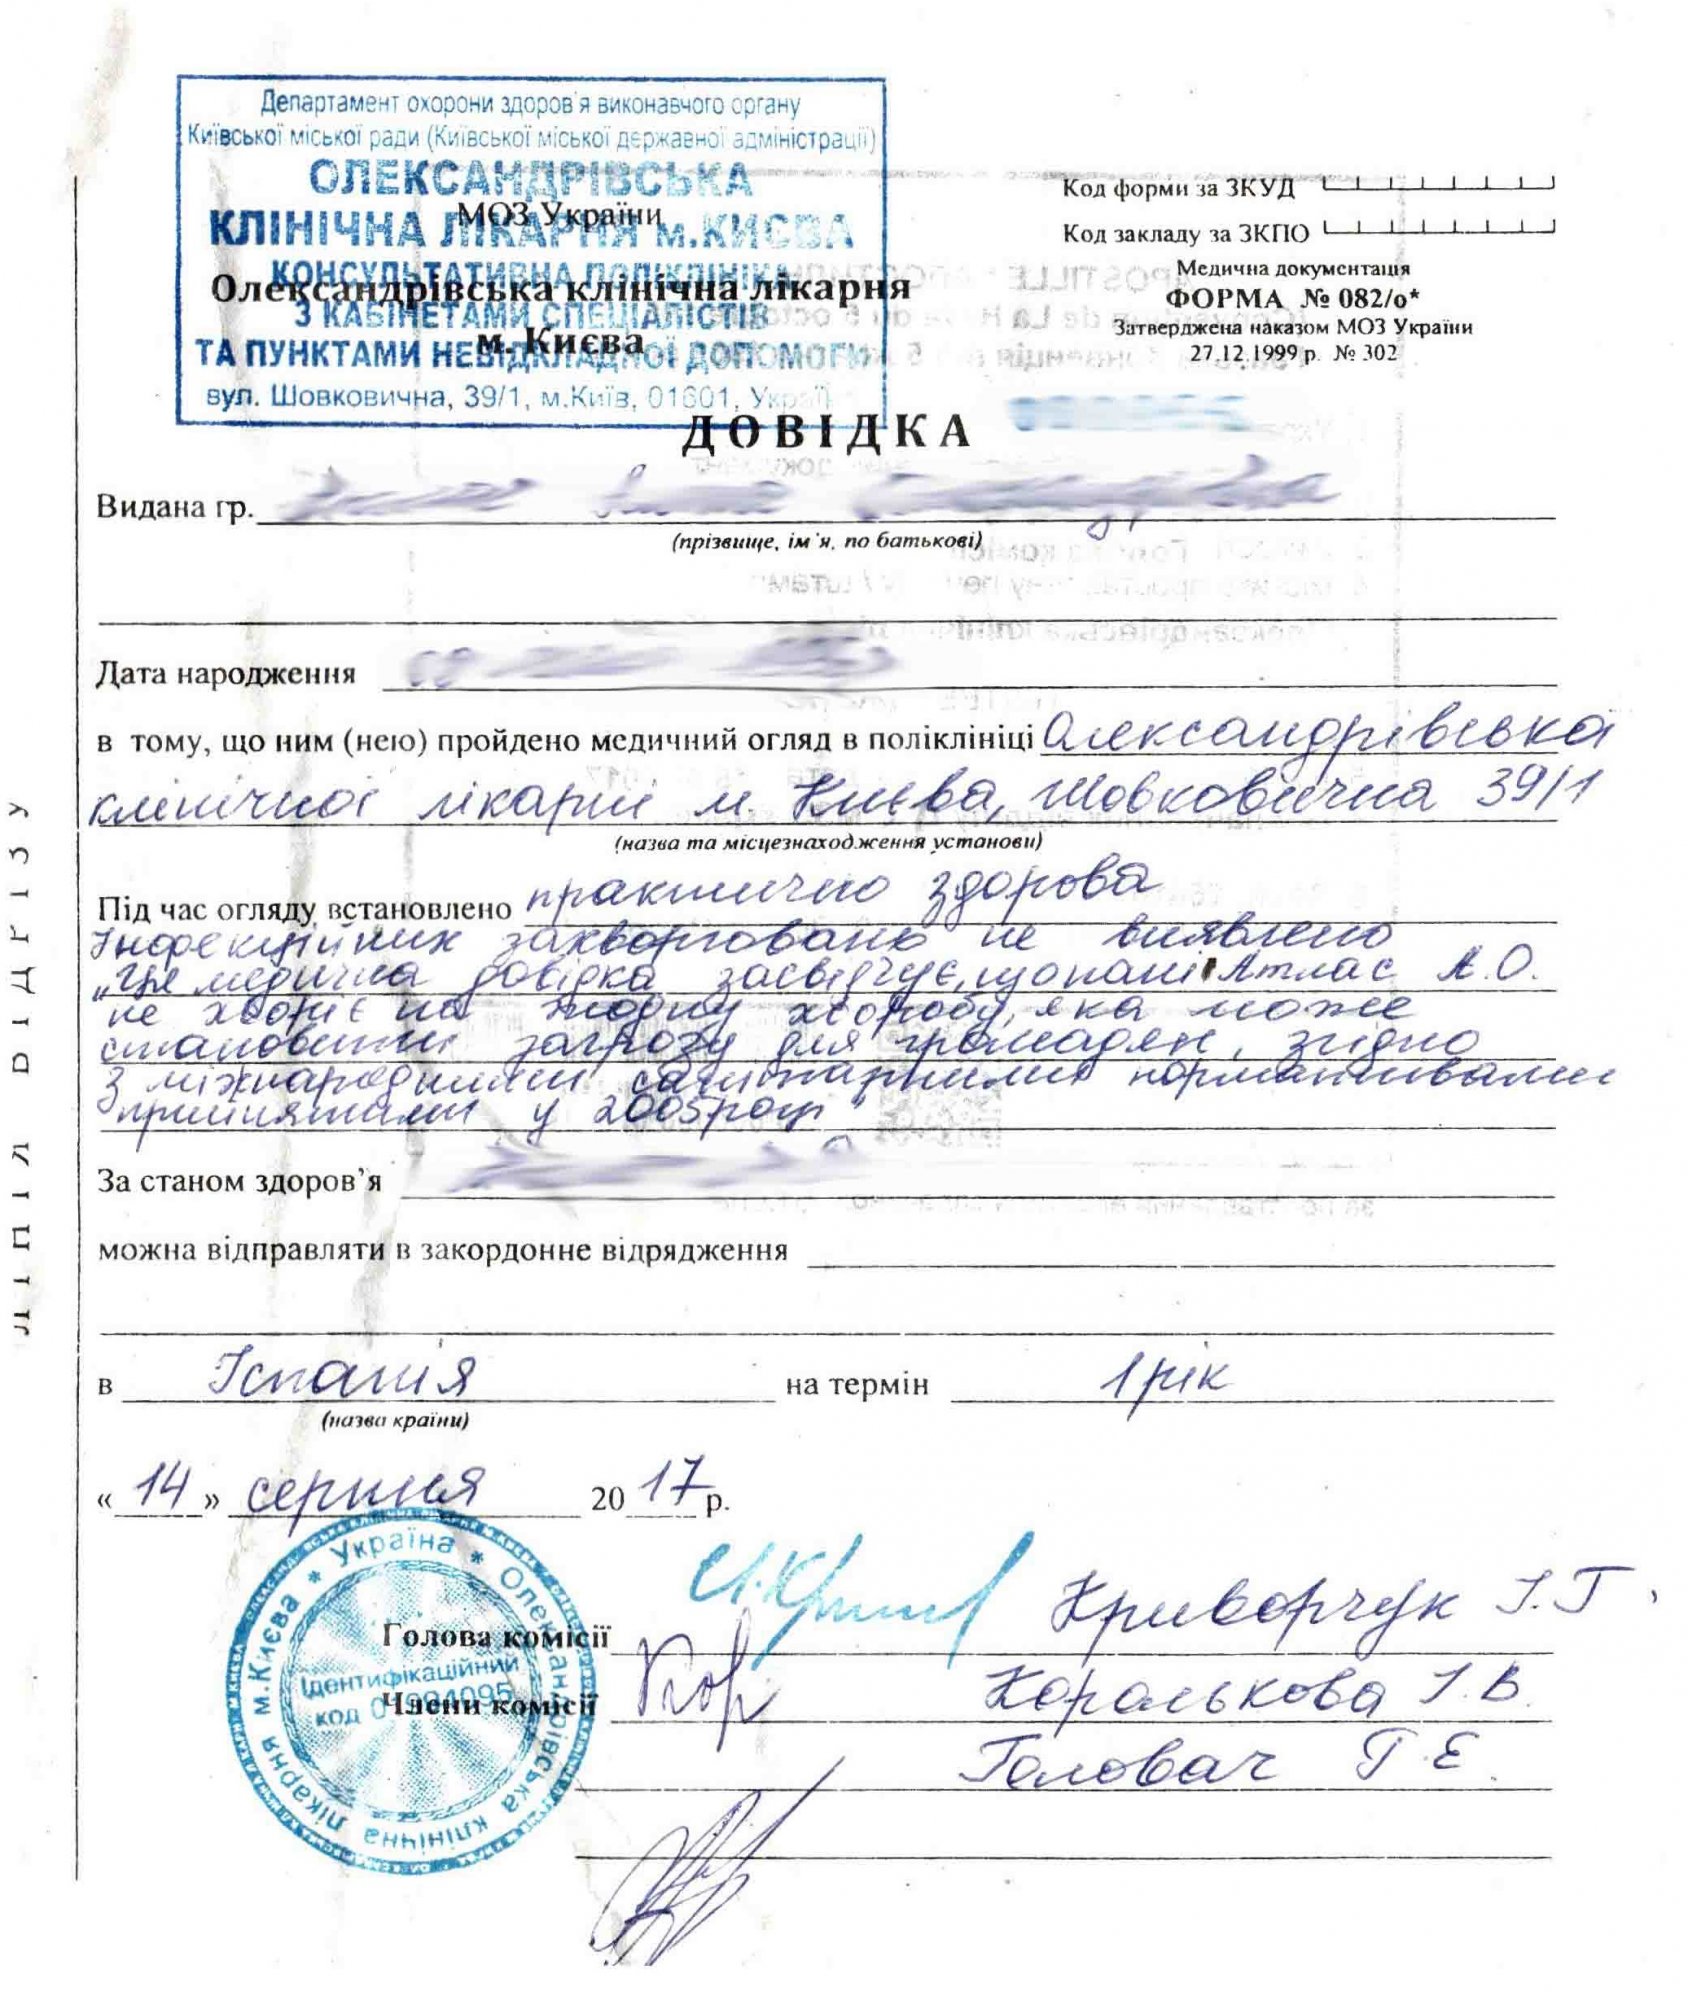 Департамент охорони здоров'я виконавчого органу
Київської міської ради (Київської міської державної адміністрації)
ОЛЕКСАНДРІВСЬКА
КЛІНІЧНА ЛІКАРНЯ м.КИЄВА
КОНСУЛЬТАТИВНА ПОЛІКЛІНІКА
З КАБІНЕТАМИ СПЕЦІАЛІСТІВ
ТА ПУНКТАМИ НЕВІДКЛАДНОЇ ДОПОМОГИ
вул. Шовковична, 39/1, м.Київ, 01601,
МОЗ України
Олександрівська клінічна лікарня
м. Києва
Код форми за ЗКУД
Код закладу за ЗКПО
Медична документація
ФОРМА № 082/о*
Затверджена наказом МОЗ України
27.12.1999 р. № 302
ДОВІДКА
Видана гр.
(прізвище, ім'я, по батькові)
Дата народження
в тому, що ним (нею) пройдено медичний огляд в поліклініці Олександрівська
клінічної лікарні м. Києва, Шовковична 39/1
(назва та місцезнаходження установи)
Під час огляду встановлено практично здорова
Інфекційних захворювань не виявлено
"Ця медична довідка засвідчує, що пані Атлас А.О.
не хворіє на жодну хворобу, яка може
становити загрозу для громадян, згідно
з міжнародними санітарними нормативами
прийнятами у 2005 році"
За станом здоров'я
можна відправляти в закордонне відрядження
в Іспанія на термін 1 рік
(назва країни)
« 14 » серпня 20 17 р.
Голова комісії Криворчук І.Г.
Члени комісії Коралькова І.В.
Головач Г.Е.
Україна * Олександрівська клінічна лікарня м.Києва *
Ідентифікаційний
код
ЛІНІЯ ВІДРІЗУ